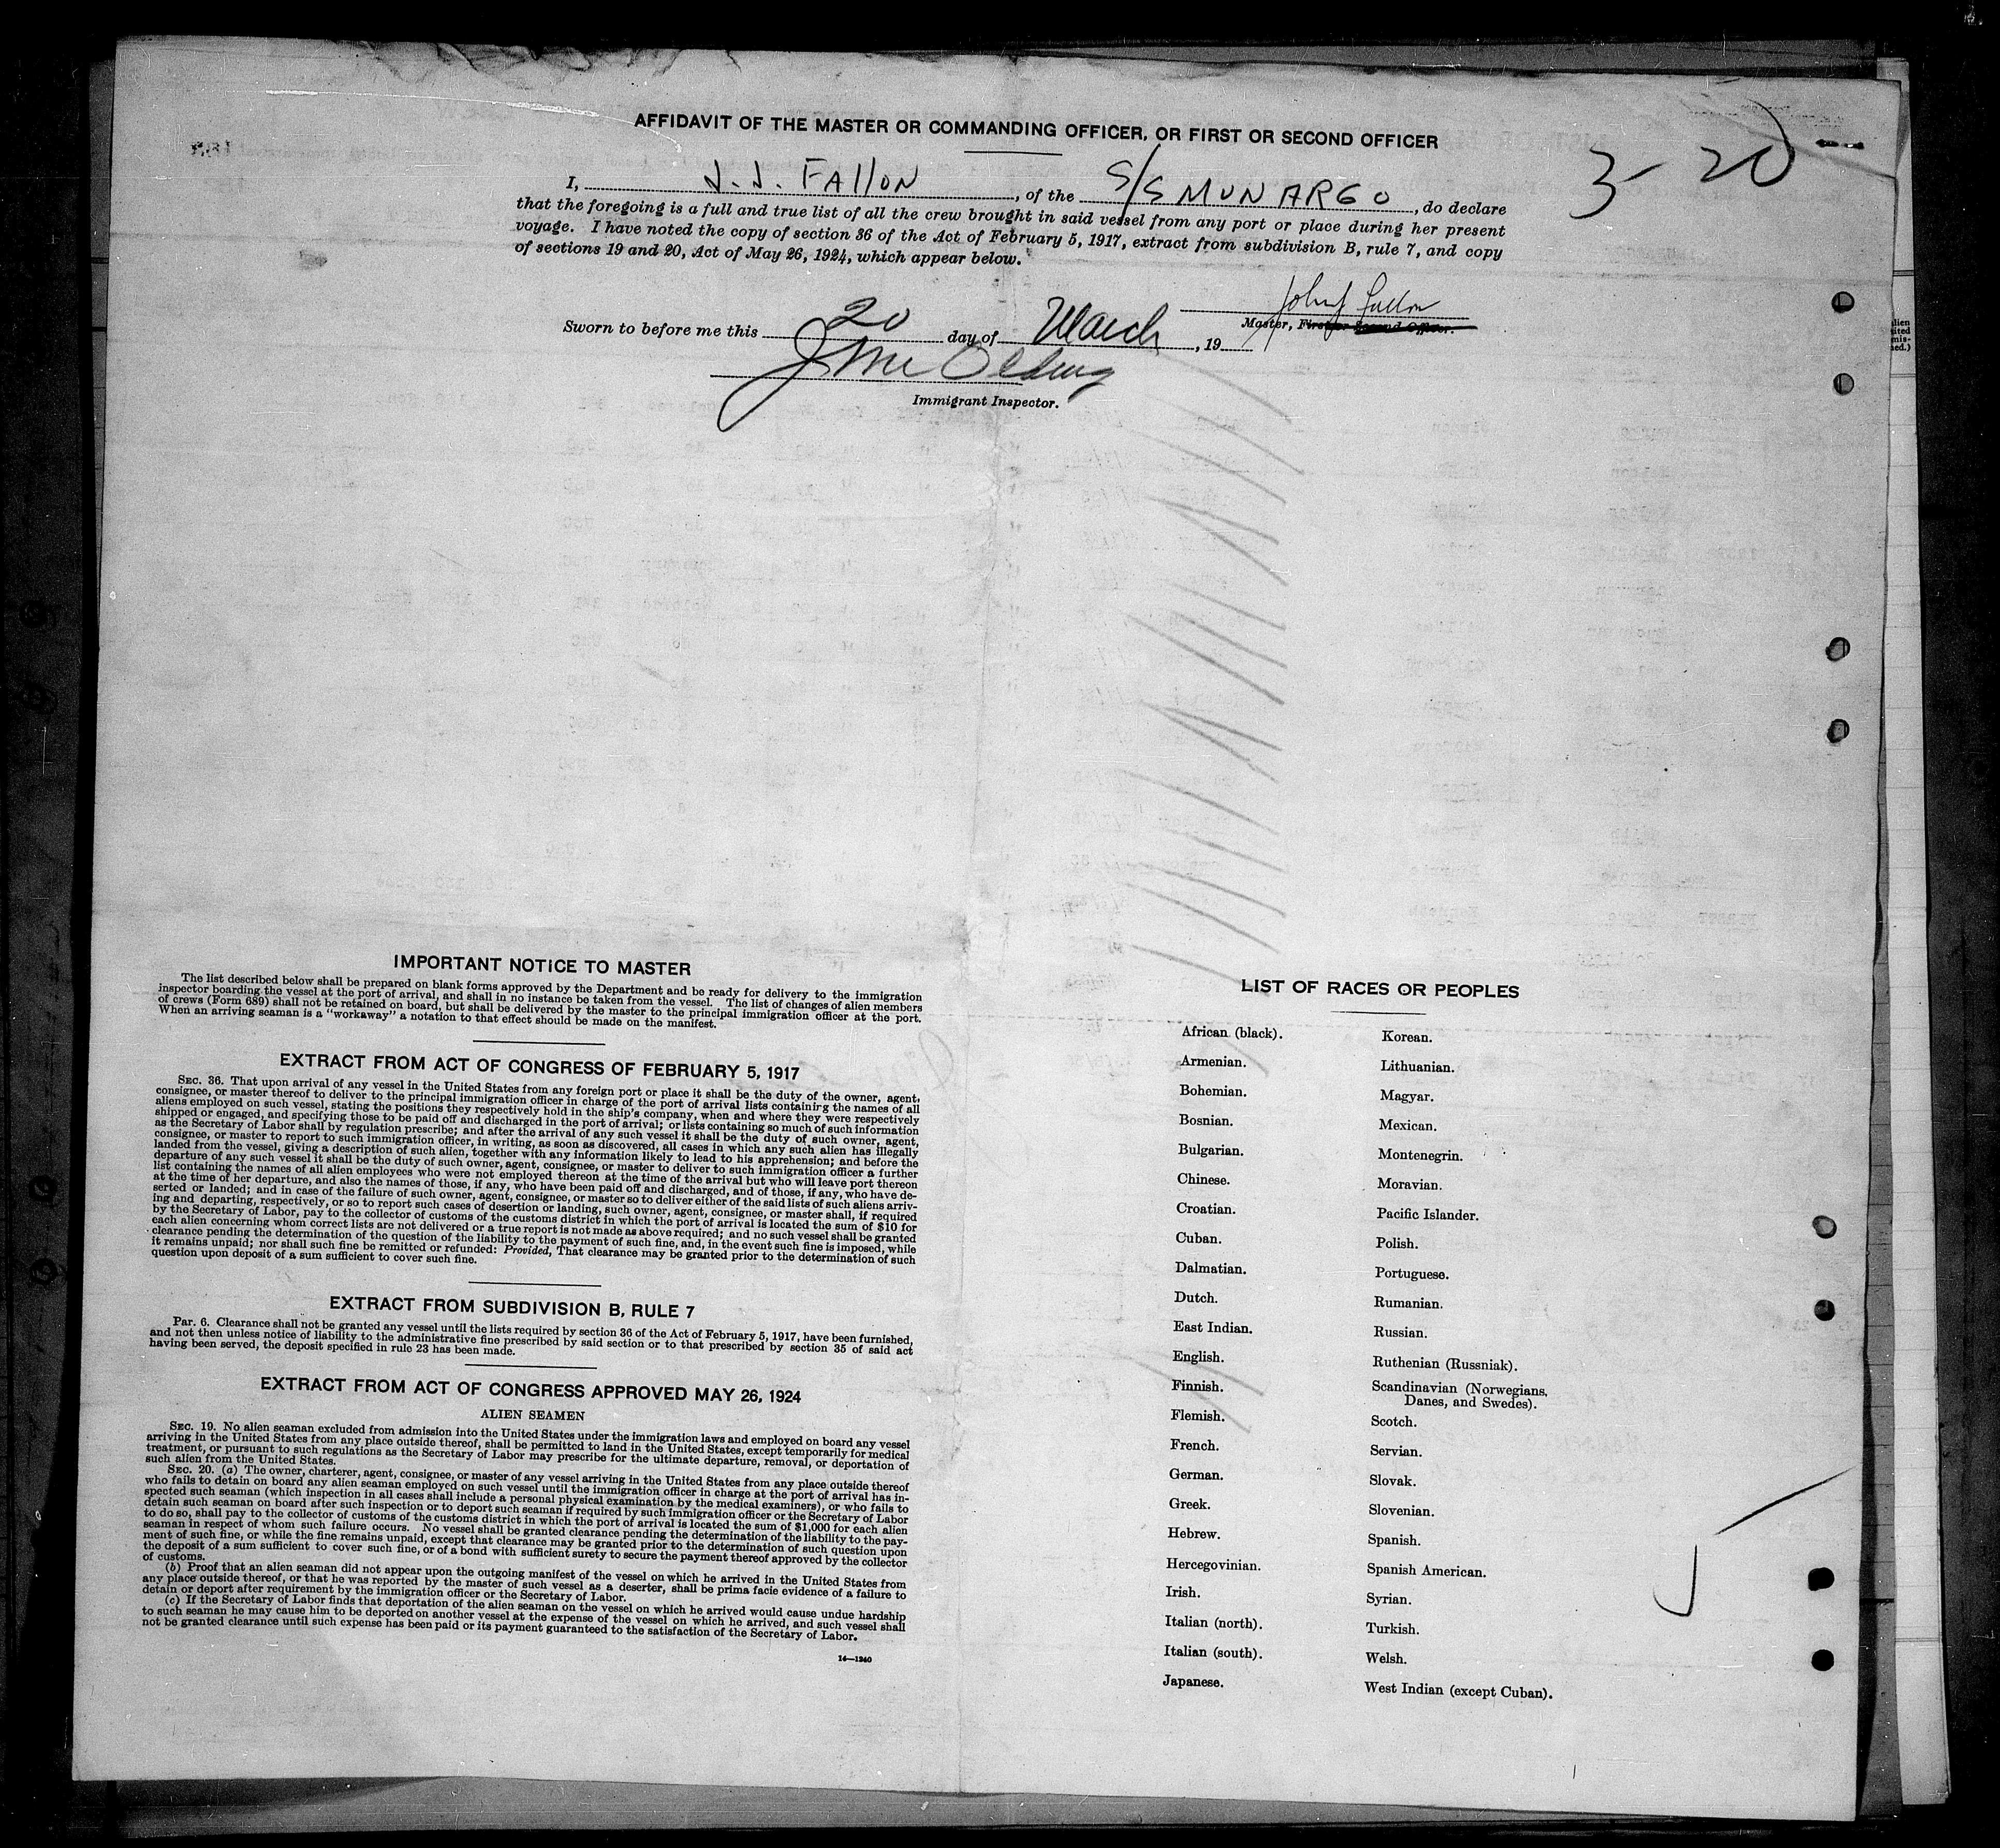 AFFIDAVIT OF THE MASTER OR COMMANDING OFFICER, OR FIRST OR SECOND OFFICER
3-20
I, J. J. FAllON, of the S/S MUNARGO, do declare
that the foregoing is a full and true list of all the crew brought in said vessel from any port or place during her present
voyage. I have noted the copy of section 36 of the Act of February 5, 1917, extract from subdivision B, rule 7, and copy
of sections 19 and 20, Act of May 26, 1924, which appear below.
John J Fallon
Master, First or Second Officer.
Sworn to before me this 20 day of March, 19
Immigrant Inspector.
IMPORTANT NOTICE TO MASTER
The list described below shall be prepared on blank forms approved by the Department and be ready for delivery to the immigration
inspector boarding the vessel at the port of arrival, and shall in no instance be taken from the vessel. The list of changes of alien members
of crews (Form 689) shall not be retained on board, but shall be delivered by the master to the principal immigration officer at the port.
When an arriving seaman is a "workaway" a notation to that effect should be made on the manifest.
EXTRACT FROM ACT OF CONGRESS OF FEBRUARY 5, 1917
SEC. 36. That upon arrival of any vessel in the United States from any foreign port or place it shall be the duty of the owner, agent,
consignee, or master thereof to deliver to the principal immigration officer in charge of the port of arrival lists containing the names of all
aliens employed on such vessel, stating the positions they respectively hold in the ship's company, when and where they were respectively
shipped or engaged, and specifying those to be paid off and discharged in the port of arrival; or lists containing so much of such information
as the Secretary of Labor shall by regulation prescribe; and after the arrival of any such vessel it shall be the duty of such owner, agent,
consignee, or master to report to such immigration officer, in writing, as soon as discovered, all cases in which any such alien has illegally
landed from the vessel, giving a description of such alien, together with any information likely to lead to his apprehension; and before the
departure of any such vessel it shall be the duty of such owner, agent, consignee, or master to deliver to such immigration officer a further
list containing the names of all alien employees who were not employed thereon at the time of the arrival but who will leave port thereon
at the time of her departure, and also the names of those, if any, who have been paid off and discharged, and of those, if any, who have de-
serted or landed; and in case of the failure of such owner, agent, consignee, or master so to deliver either of the said lists of such aliens arriv-
ing and departing, respectively, or so to report such cases of desertion or landing, such owner, agent, consignee, or master shall, if required
by the Secretary of Labor, pay to the collector of customs of the customs district in which the port of arrival is located the sum of $10 for
each alien concerning whom correct lists are not delivered or a true report is not made as above required; and no such vessel shall be granted
clearance pending the determination of the question of the liability to the payment of such fine, and, in the event such fine is imposed, while
it remains unpaid; nor shall such fine be remitted or refunded: Provided, That clearance may be granted prior to the determination of such
question upon deposit of a sum sufficient to cover such fine.
EXTRACT FROM SUBDIVISION B, RULE 7
Par. 6. Clearance shall not be granted any vessel until the lists required by section 36 of the Act of February 5, 1917, have been furnished,
and not then unless notice of liability to the administrative fine prescribed by said section or to that prescribed by section 35 of said act
having been served, the deposit specified in rule 23 has been made.
EXTRACT FROM ACT OF CONGRESS APPROVED MAY 26, 1924
ALIEN SEAMEN
SEC. 19. No alien seaman excluded from admission into the United States under the immigration laws and employed on board any vessel
arriving in the United States from any place outside thereof, shall be permitted to land in the United States, except temporarily for medical
treatment, or pursuant to such regulations as the Secretary of Labor may prescribe for the ultimate departure, removal, or deportation of
such alien from the United States.
SEC. 20. (a) The owner, charterer, agent, consignee, or master of any vessel arriving in the United States from any place outside thereof
who fails to detain on board any alien seaman employed on such vessel until the immigration officer in charge at the port of arrival has in-
spected such seaman (which inspection in all cases shall include a personal physical examination by the medical examiners), or who fails to
detain such seaman on board after such inspection or to deport such seaman if required by such immigration officer or the Secretary of Labor
to do so, shall pay to the collector of customs of the customs district in which the port of arrival is located the sum of $1,000 for each alien
seaman in respect of whom such failure occurs. No vessel shall be granted clearance pending the determination of the liability to the pay-
ment of such fine, or while the fine remains unpaid, except that clearance may be granted prior to the determination of such question upon
the deposit of a sum sufficient to cover such fine, or of a bond with sufficient surety to secure the payment thereof approved by the collector
of customs.
(b) Proof that an alien seaman did not appear upon the outgoing manifest of the vessel on which he arrived in the United States from
any place outside thereof, or that he was reported by the master of such vessel as a deserter, shall be prima facie evidence of a failure to
detain or deport after requirement by the immigration officer or the Secretary of Labor.
(c) If the Secretary of Labor finds that deportation of the alien seaman on the vessel on which he arrived would cause undue hardship
to such seaman he may cause him to be deported on another vessel at the expense of the vessel on which he arrived, and such vessel shall
not be granted clearance until such expense has been paid or its payment guaranteed to the satisfaction of the Secretary of Labor.
14—1240
LIST OF RACES OR PEOPLES
African (black).
Armenian.
Bohemian.
Bosnian.
Bulgarian.
Chinese.
Croatian.
Cuban.
Dalmatian.
Dutch.
East Indian.
English.
Finnish.
Flemish.
French.
German.
Greek.
Hebrew.
Hercegovinian.
Irish.
Italian (north).
Italian (south).
Japanese.
Korean.
Lithuanian.
Magyar.
Mexican.
Montenegrin.
Moravian.
Pacific Islander.
Polish.
Portuguese.
Rumanian.
Russian.
Ruthenian (Russniak).
Scandinavian (Norwegians,
Danes, and Swedes).
Scotch.
Servian.
Slovak.
Slovenian.
Spanish.
Spanish American.
Syrian.
Turkish.
Welsh.
West Indian (except Cuban).